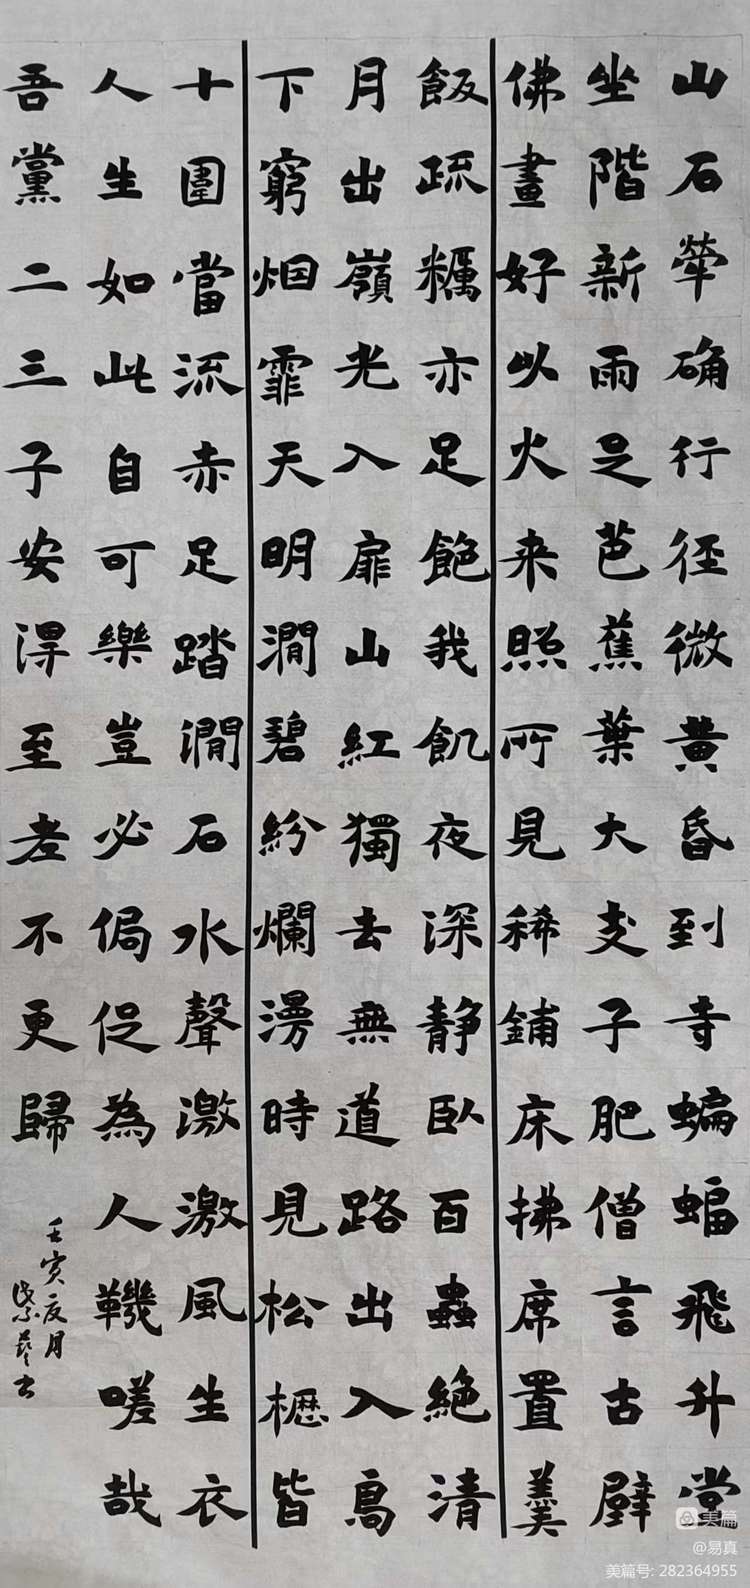 山石犖确行徑微黄昏到寺蝙蝠飛升堂
坐階新雨足芭蕉葉大支子肥僧言古壁
佛畫好以火来照所見稀鋪床拂席置羹
飯疏糲亦足飽我飢夜深静卧百蟲絶清
月出嶺光入扉山紅獨去無道路出入高
下窮烟霏天明澗碧紛爛漫時見松櫪皆
十圍當流赤足踏澗石水聲激激風生衣
人生如此自可樂豈必侷促為人鞿嗟哉
吾黨二三子安得至老不更歸
壬寅夏月
书
美篇
@易真
美篇号: 282364955